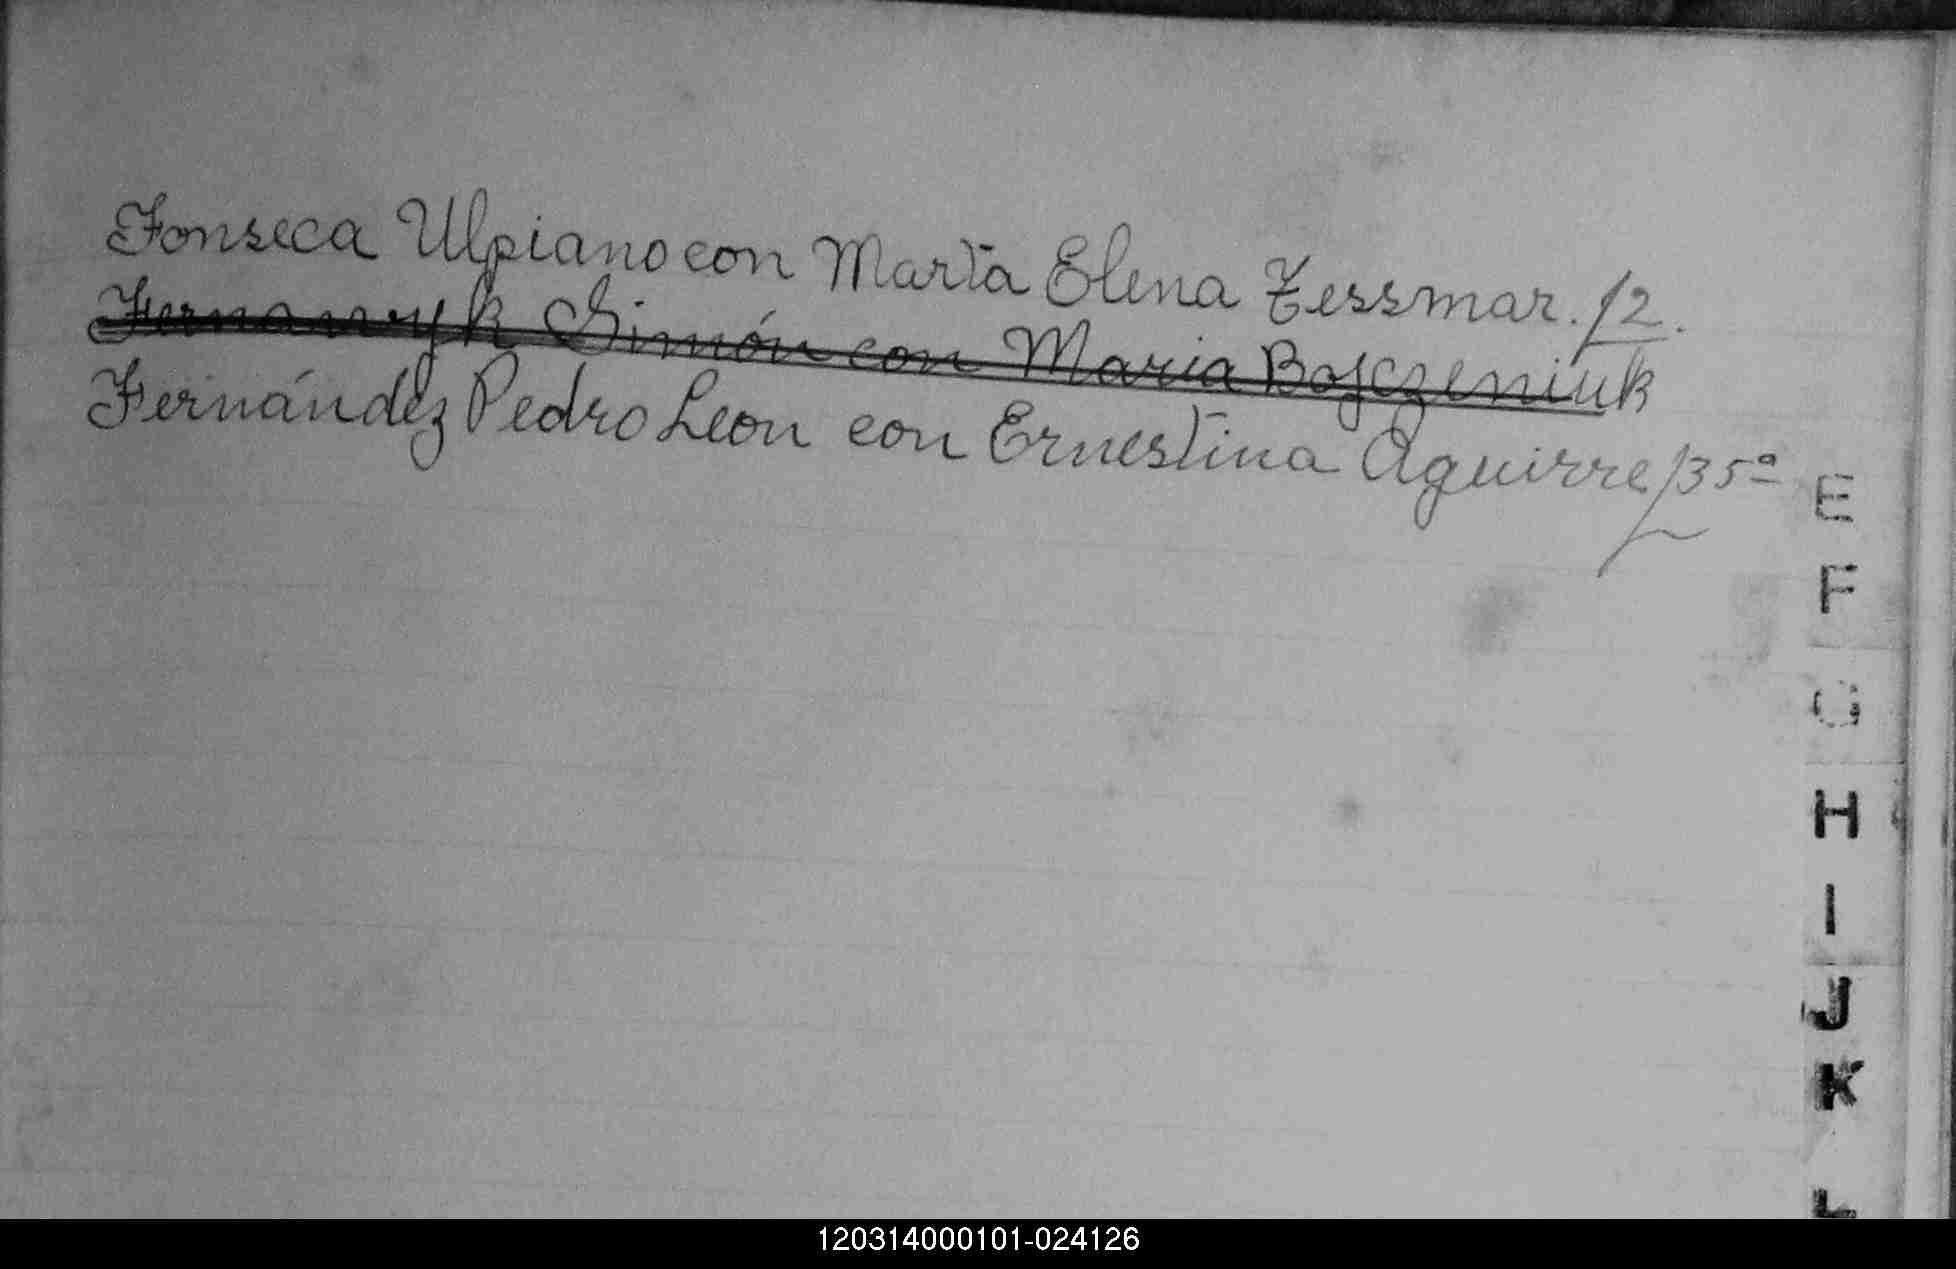 Fonseca Ulpiano con María Elena Tessmar. f2.
Simón con Maria Bojczeniuk
Fernández Pedro Leon con Ernestina Aguirre f35ª
E
F
G
H
I
J
K
L
120314000101-024126